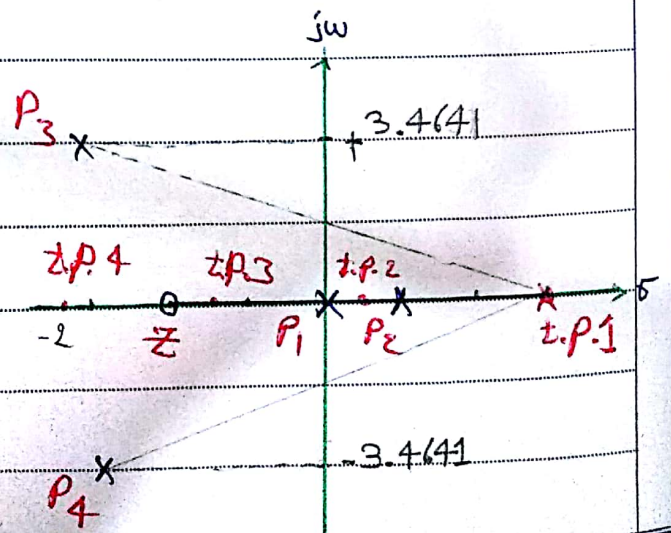 jw
P3
+ 3.4641
t.p.4 t.p.3 t.p.2
σ
-2 Z P1 P2 t.p.1
-3.4641
P4